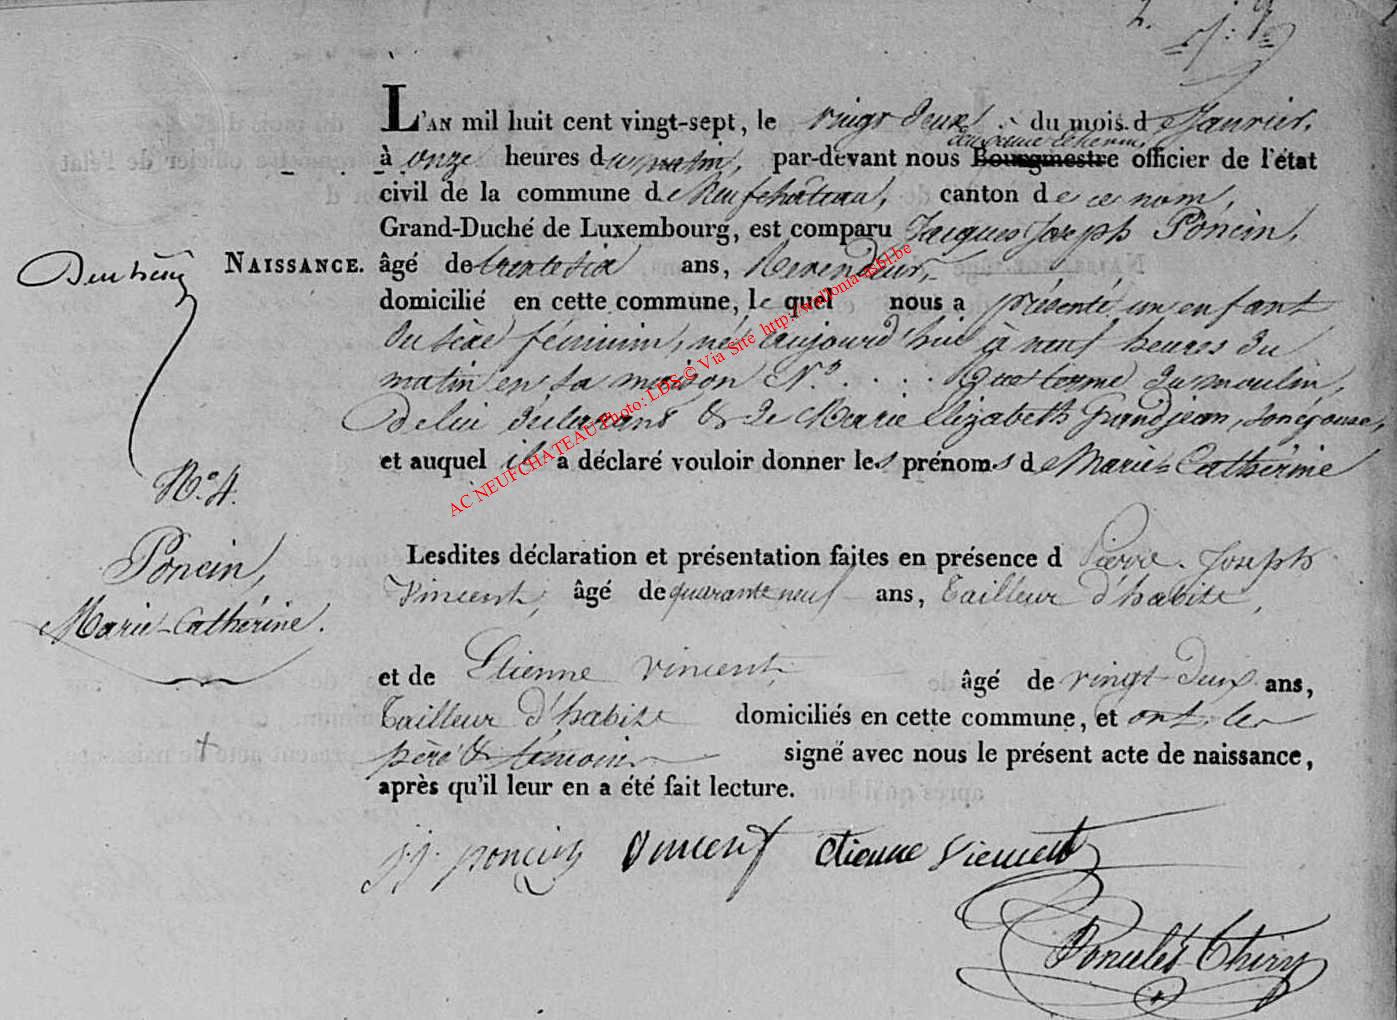 L'AN mil huit cent vingt-sept, le vingt deux du mois d e Janvier,
à onze heures du matin, par-devant nous Bourgmestre officier de l'état
civil de la commune de Neufchateau, canton de ce nom,
Grand-Duché de Luxembourg, est comparu Jacques Joseph Poncin,
NAISSANCE. âgé de trente six ans, Revendeur,
domicilié en cette commune, le quel nous a présenté un enfant
du sexe féminin, né aujourd'hui à neuf heures du
matin en sa maison N.º . . . . du moulin,
de lui déclarant & de Marie Elizabeth Grandjean, son épouse,
et auquel il a déclaré vouloir donner les prénoms de Marie-Catherine
N.º 4.
Poncin,
Marie-Cathérine.
Lesdites déclaration et présentation faites en présence d Pierre-Joseph
Vincent, âgé de quarante neuf ans, tailleur d'habits,
et de Etienne Vincent, âgé de vingt-deux ans,
tailleur d'habits domiciliés en cette commune, et ont les
père & témoins signé avec nous le présent acte de naissance,
après qu'il leur en a été fait lecture.
JJ. poncin Vincent etienne Vincent
Thiry
AC NEUFCHATEAU Photo: LDS © Via Site http://wallonia-asbl.be